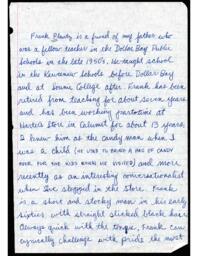 Frank Blauty is a friend of my father who
was a fellow teacher in the Dollar Bay Public
Schools in the late 1950's. He taught school
in the Keweenaw Schools before Dollar Bay
and at Suomi College after. Frank has been
retired from teaching for about seven years
and has been working parttime at
Harter's Store in Calumet for about 15 years.
I knew him as the candy man when I
was a child (he used to bring a bag of candy
over for the kids when he visited) and more
recently as an interesting conversationalist
when I've stopped in the store. Frank
is a short and stocky man in his early
sixties with straight slicked black hair.
Always quick with the tongue, Frank can
cynically challenge with pride the most